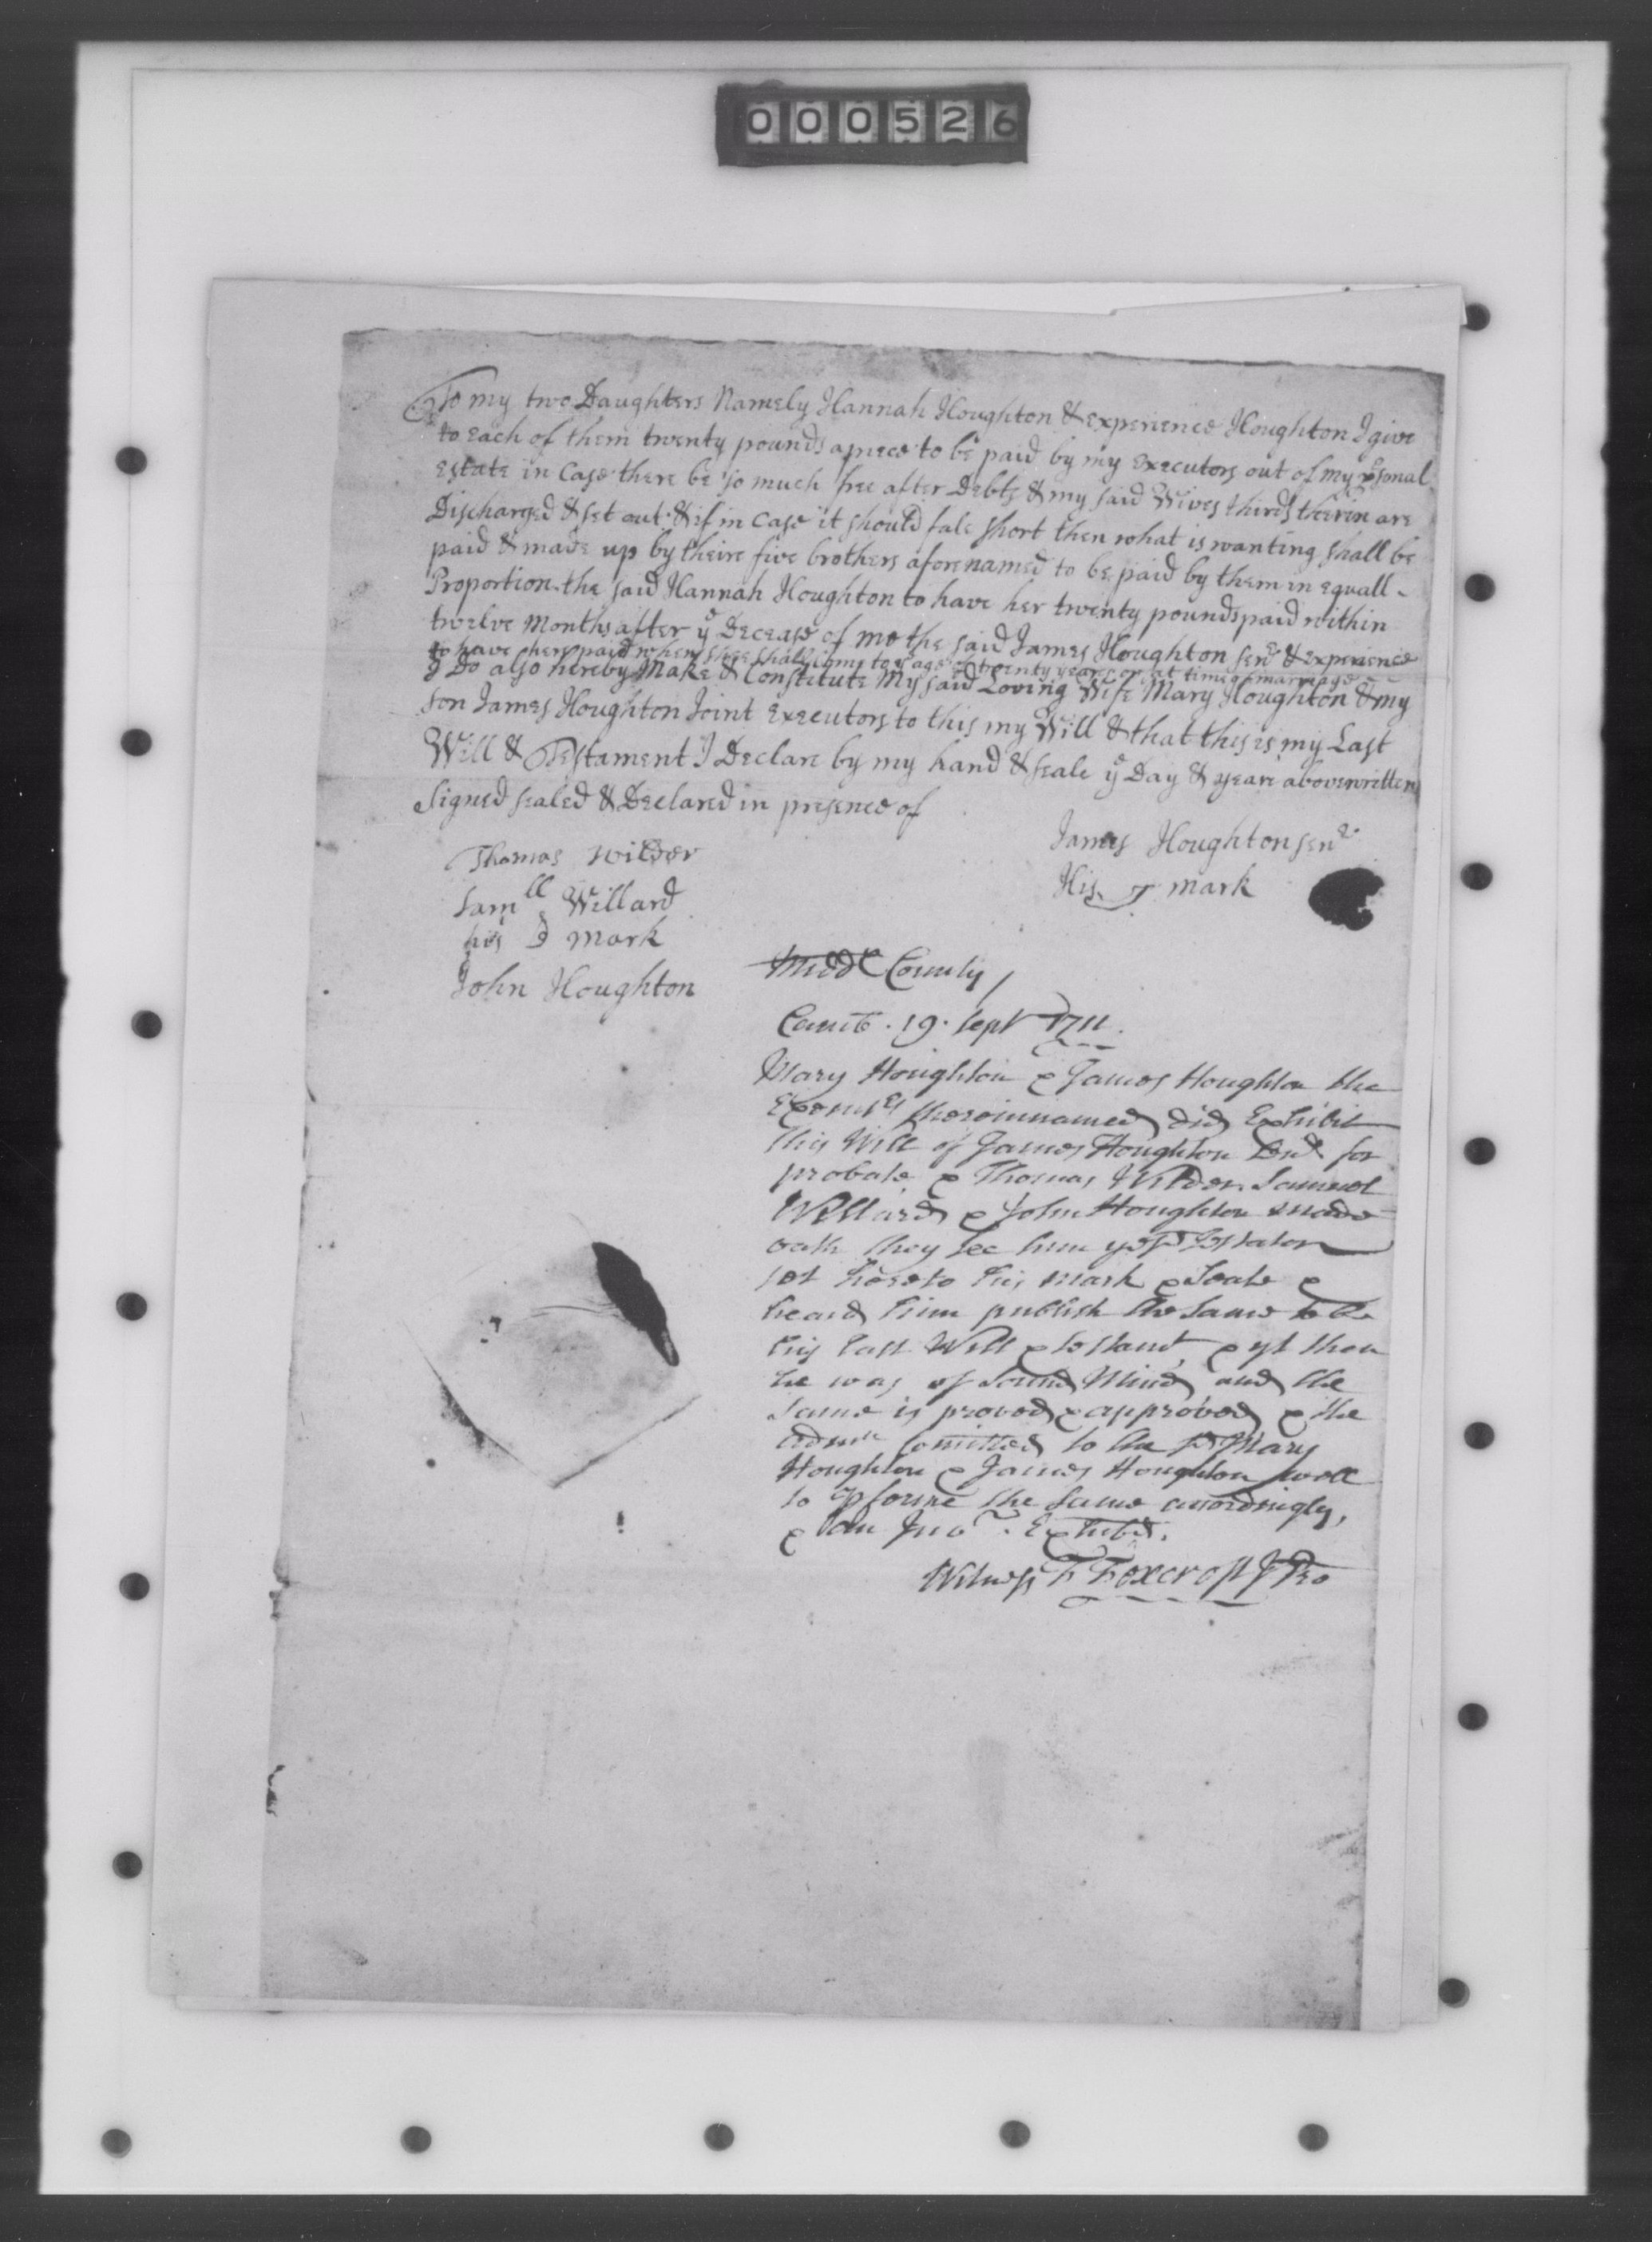 000526
To my two Daughters Namely Hannah Houghton & Experience Houghton I give
to Each of them twenty pounds apiece to be paid by my Executors out of my psonal
Estate in Case there be so much free after Debts & my said Wives thirds therein are
Discharged & set out & if in Case it should fale short then what is wanting shall be
paid & made up by theire five brothers aforenamed to be paid by them in equall
Proportion the said Hannah Houghton to have her twenty pounds paid within
twelve Months after ye Decease of me the said James Houghton senr & Experience
to have hers paid when shee shall come to ye age of twenty years or at time of marriage
I Do also hereby Make & Constitute My said Loving Wife Mary Houghton & my
son James Houghton Joint Executors to this my Will & that this is my Last
Will & Testament I Declare by my hand & seale ye Day & yeare abovewritten
Signed sealed & Declared in presence of
James Houghton senr
His mark
Thomas Wilder
Samll Willard
his mark
John Houghton
Midd County
Camb. 19. Sept 1711.
Mary Houghton & James Houghton the
Executs thereinnamed did Exhibit
this Will of James Houghton Decd for
probate & Thomas Wilder Samuel
Willard & John Houghton made
oath they see him ye sd Testator
set hereto his mark & Seale &
heard him publish the same to be
his last Will & testamt, & yt then
he was of Sound Mind and the
same is proved & approved & the
admn Comitted to the sd Mary
Houghton & James Houghton well
to pforme the same accordingly,
& an Inv. Exhibd.
Witness F Foxcroft J Pro